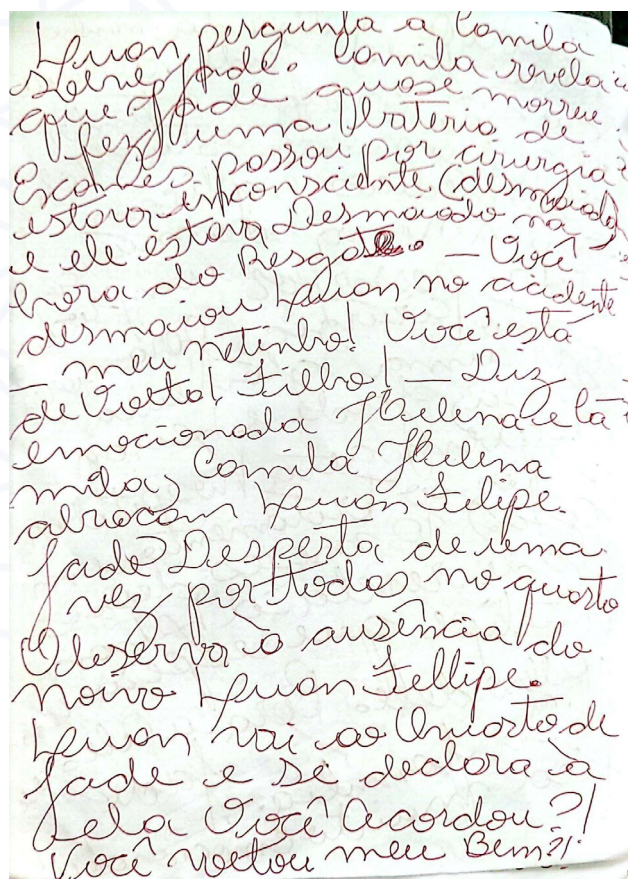 Luan pergunta a Camila
sobre Jade. Camila revela
que Jade quase morreu
fez uma Bateria de
Exames passou por cirurgia
estava inconsciente (desmaiada)
e ele estava Desmaiado na
hora do Resgate. — Você
desmaiou Luan no acidente
— meu netinho! Você está
de Volta! Filho! — Diz
emocionada Helena e Ca
mila, Camila Helena
abraçam Luan Felipe.
Jade Desperta de uma
vez por todas no quarto
Observa à ausência do
noivo Luan Fellipe.
Luan vai ao Quarto de
Jade e se declara à
ela Você Acordou?!
Você voltou meu Bem?!